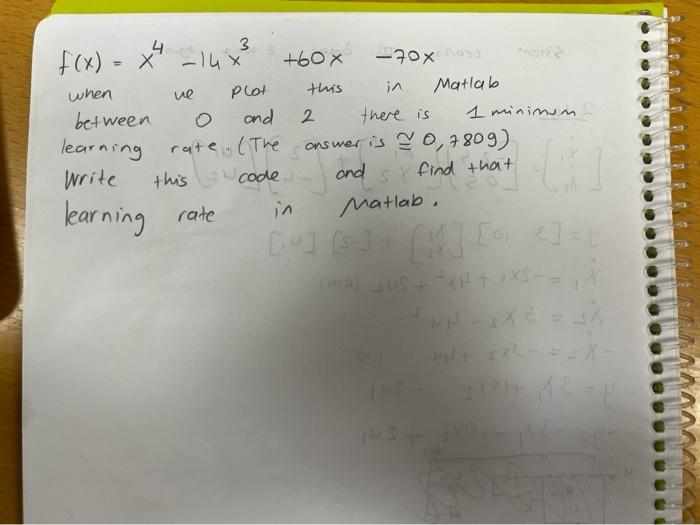 f(x) = x⁴ - 14x³ +60x -70x
when we plot this in Matlab
between 0 and 2 there is 1 minimum
learning rate. (The answer is ≅ 0,7809)
Write this code and find that
learning rate in Matlab.